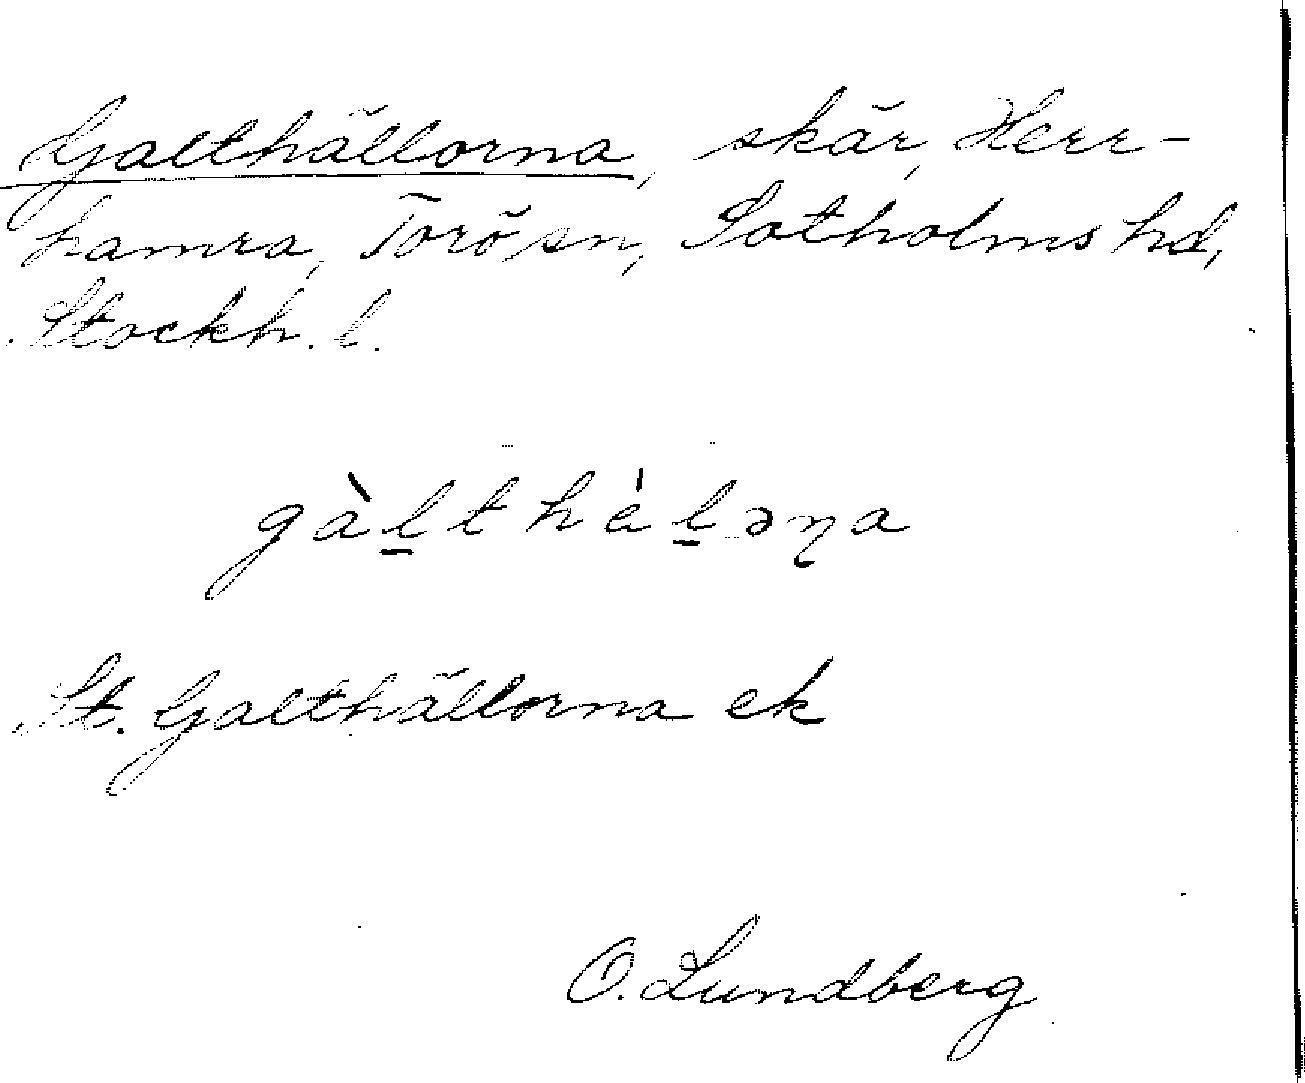 Galthällorna, skär, Herr-
hamra, Torö sn, Sotholms hd,
Stockh. l.
gàl̠thèl̠əɳa
St. Galthällorna ek
O. Lundberg